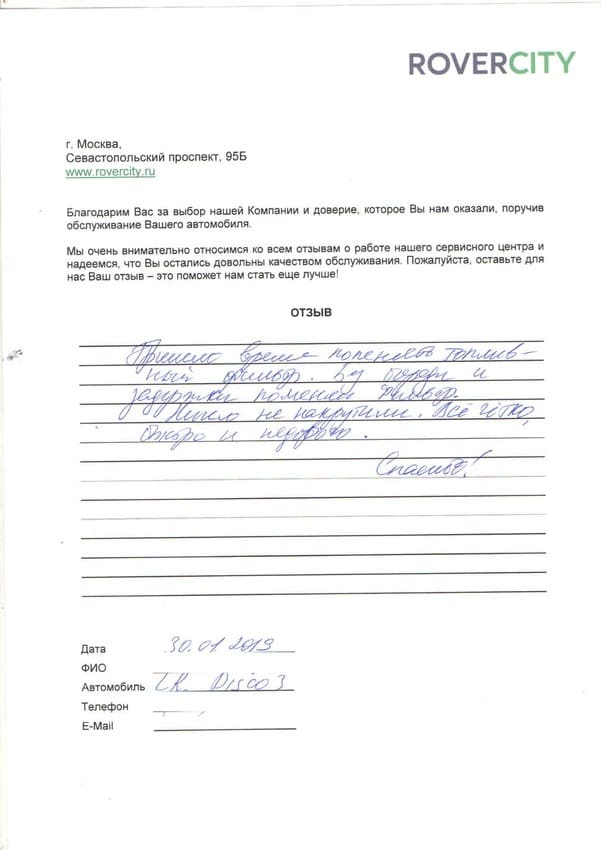 ROVERCITY
г. Москва,
Севастопольский проспект, 95Б
www.rovercity.ru
Благодарим Вас за выбор нашей Компании и доверие, которое Вы нам оказали, поручив
обслуживание Вашего автомобиля.
Мы очень внимательно относимся ко всем отзывам о работе нашего сервисного центра и
надеемся, что Вы остались довольны качеством обслуживания. Пожалуйста, оставьте для
нас Ваш отзыв – это поможет нам стать еще лучше!
ОТЗЫВ
Пришло время поменять топлив-
ный фильтр. и
задержки поменяли фильтр.
Ничего не накрутили. Всё чётко,
быстро и недорого.
Спасибо!
Дата 30.01.2019
ФИО
Автомобиль LR Disco 3
Телефон
E-Mail